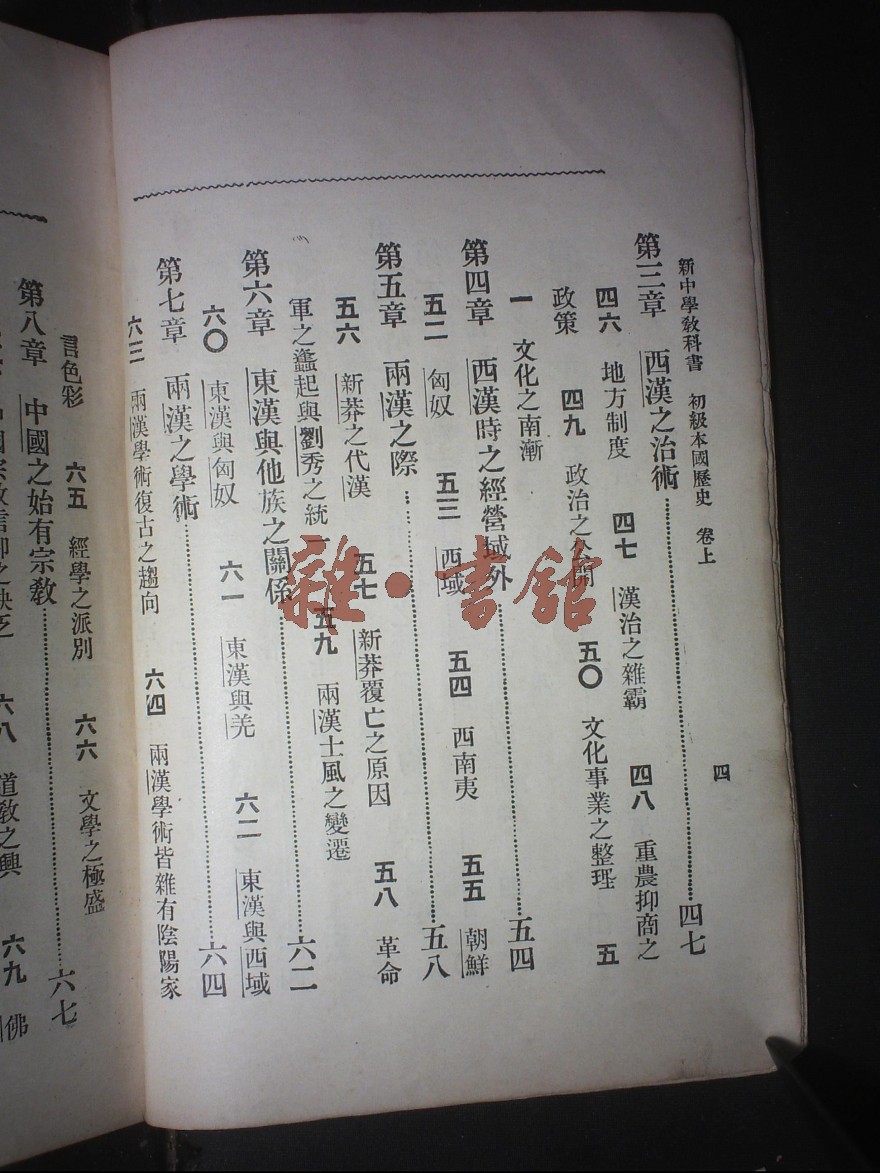 新中學教科書 初級本國歷史 卷上
四
第三章 西漢之治術……四七
四六 地方制度 四七 漢治之雜霸 四八 重農抑商之
政策 四九 政治之公開 五〇 文化事業之整理 五
一 文化之南漸
第四章 西漢時之經營域外……五四
五二 匈奴 五三 西域 五四 西南夷 五五 朝鮮
第五章 兩漢之際……五八
五六 新莽之代漢 五七 新莽覆亡之原因 五八 革命
軍之蠭起與劉秀之統一 五九 兩漢士風之變遷
第六章 東漢與他族之關係……六二
六〇 東漢與匈奴 六一 東漢與羌 六二 東漢與西域
第七章 兩漢之學術……六四
六三 兩漢學術復古之趨向 六四 兩漢學術皆雜有陰陽家
言色彩 六五 經學之派別 六六 文學之極盛
第八章 中國之始有宗教……六七
國宗教信仰之缺乏 六八 道教之興 六九 佛
雜·書館